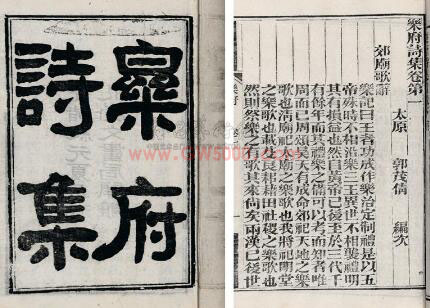 樂府
詩集
樂府詩集卷第一
太原 郭茂倩 編次
郊廟歌辭
樂記曰王者功成作樂治定制禮是以五
帝殊時不相沿樂三王異世不相襲禮明
其有損益也然自黃帝已後至於三代千
有餘年而其禮樂之備可以考而知者唯
周而已周頌昊天有成命郊祀天地之樂
歌也清廟祀太廟之樂歌也我將祀明堂
之樂歌也載芟良耜藉田社稷之樂歌也
然則祭樂之有歌其來尚矣兩漢已後世